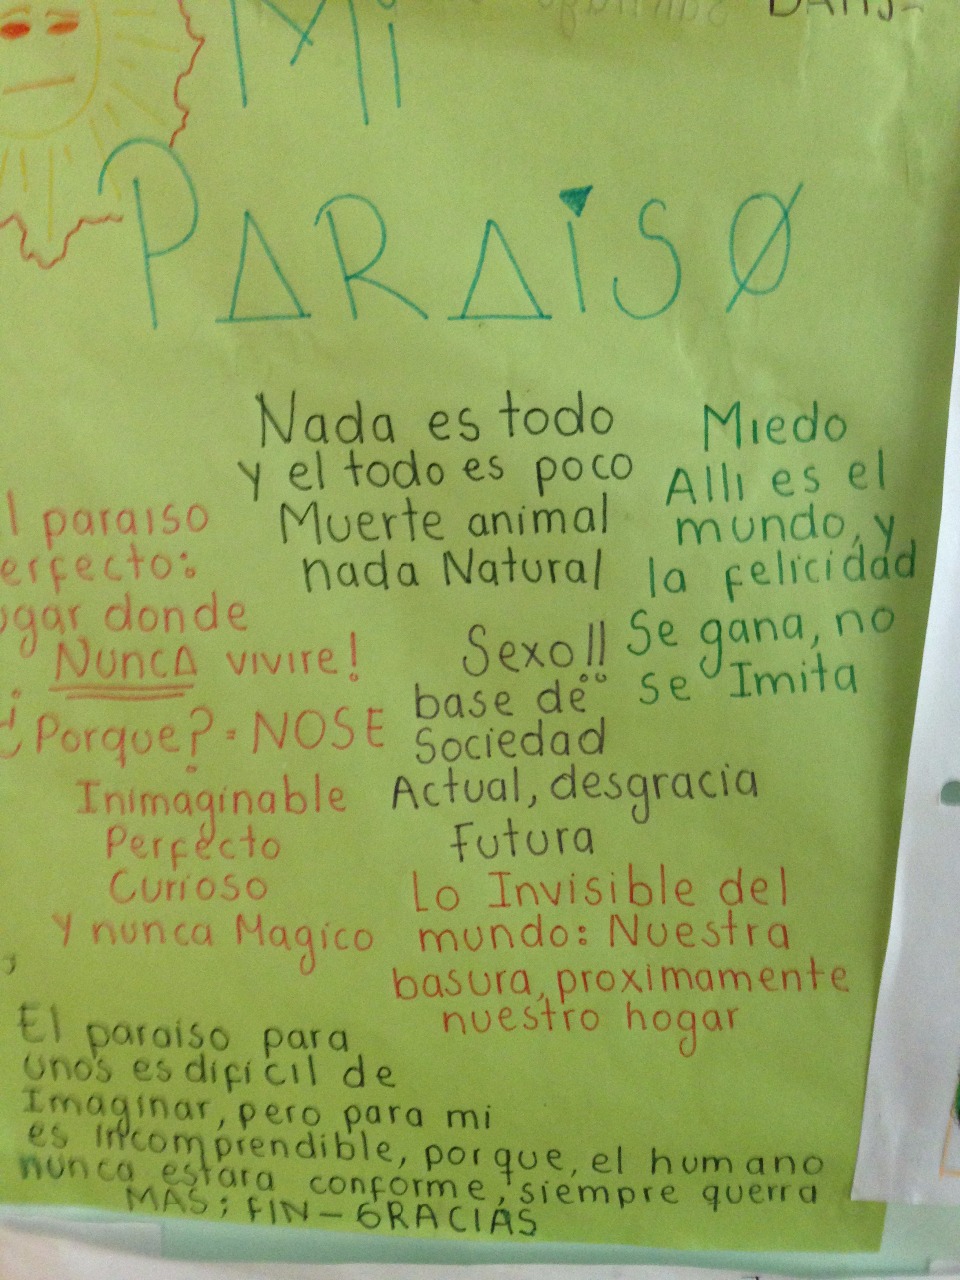 Mi
PARAiSO
Nada es todo
y el todo es poco
Muerte animal
nada Natural
Miedo
Alli es el
mundo, y
la felicidad
Se gana, no
se Imita
l paraiso
erfecto:
ugar donde
NUNCA vivire!
¿Porque? = NOSE
Inimaginable
Perfecto
Curioso
Y nunca Magico
Sexo!!
base de
Sociedad
Actual, desgracia
Futura
Lo Invisible del
mundo: Nuestra
basura, proximamente
nuestro hogar
El paraiso para
unos es dificil de
Imaginar, pero para mi
es incomprendible, porque, el humano
nunca estara conforme, siempre querra
MAS; FIN - GRACIAS